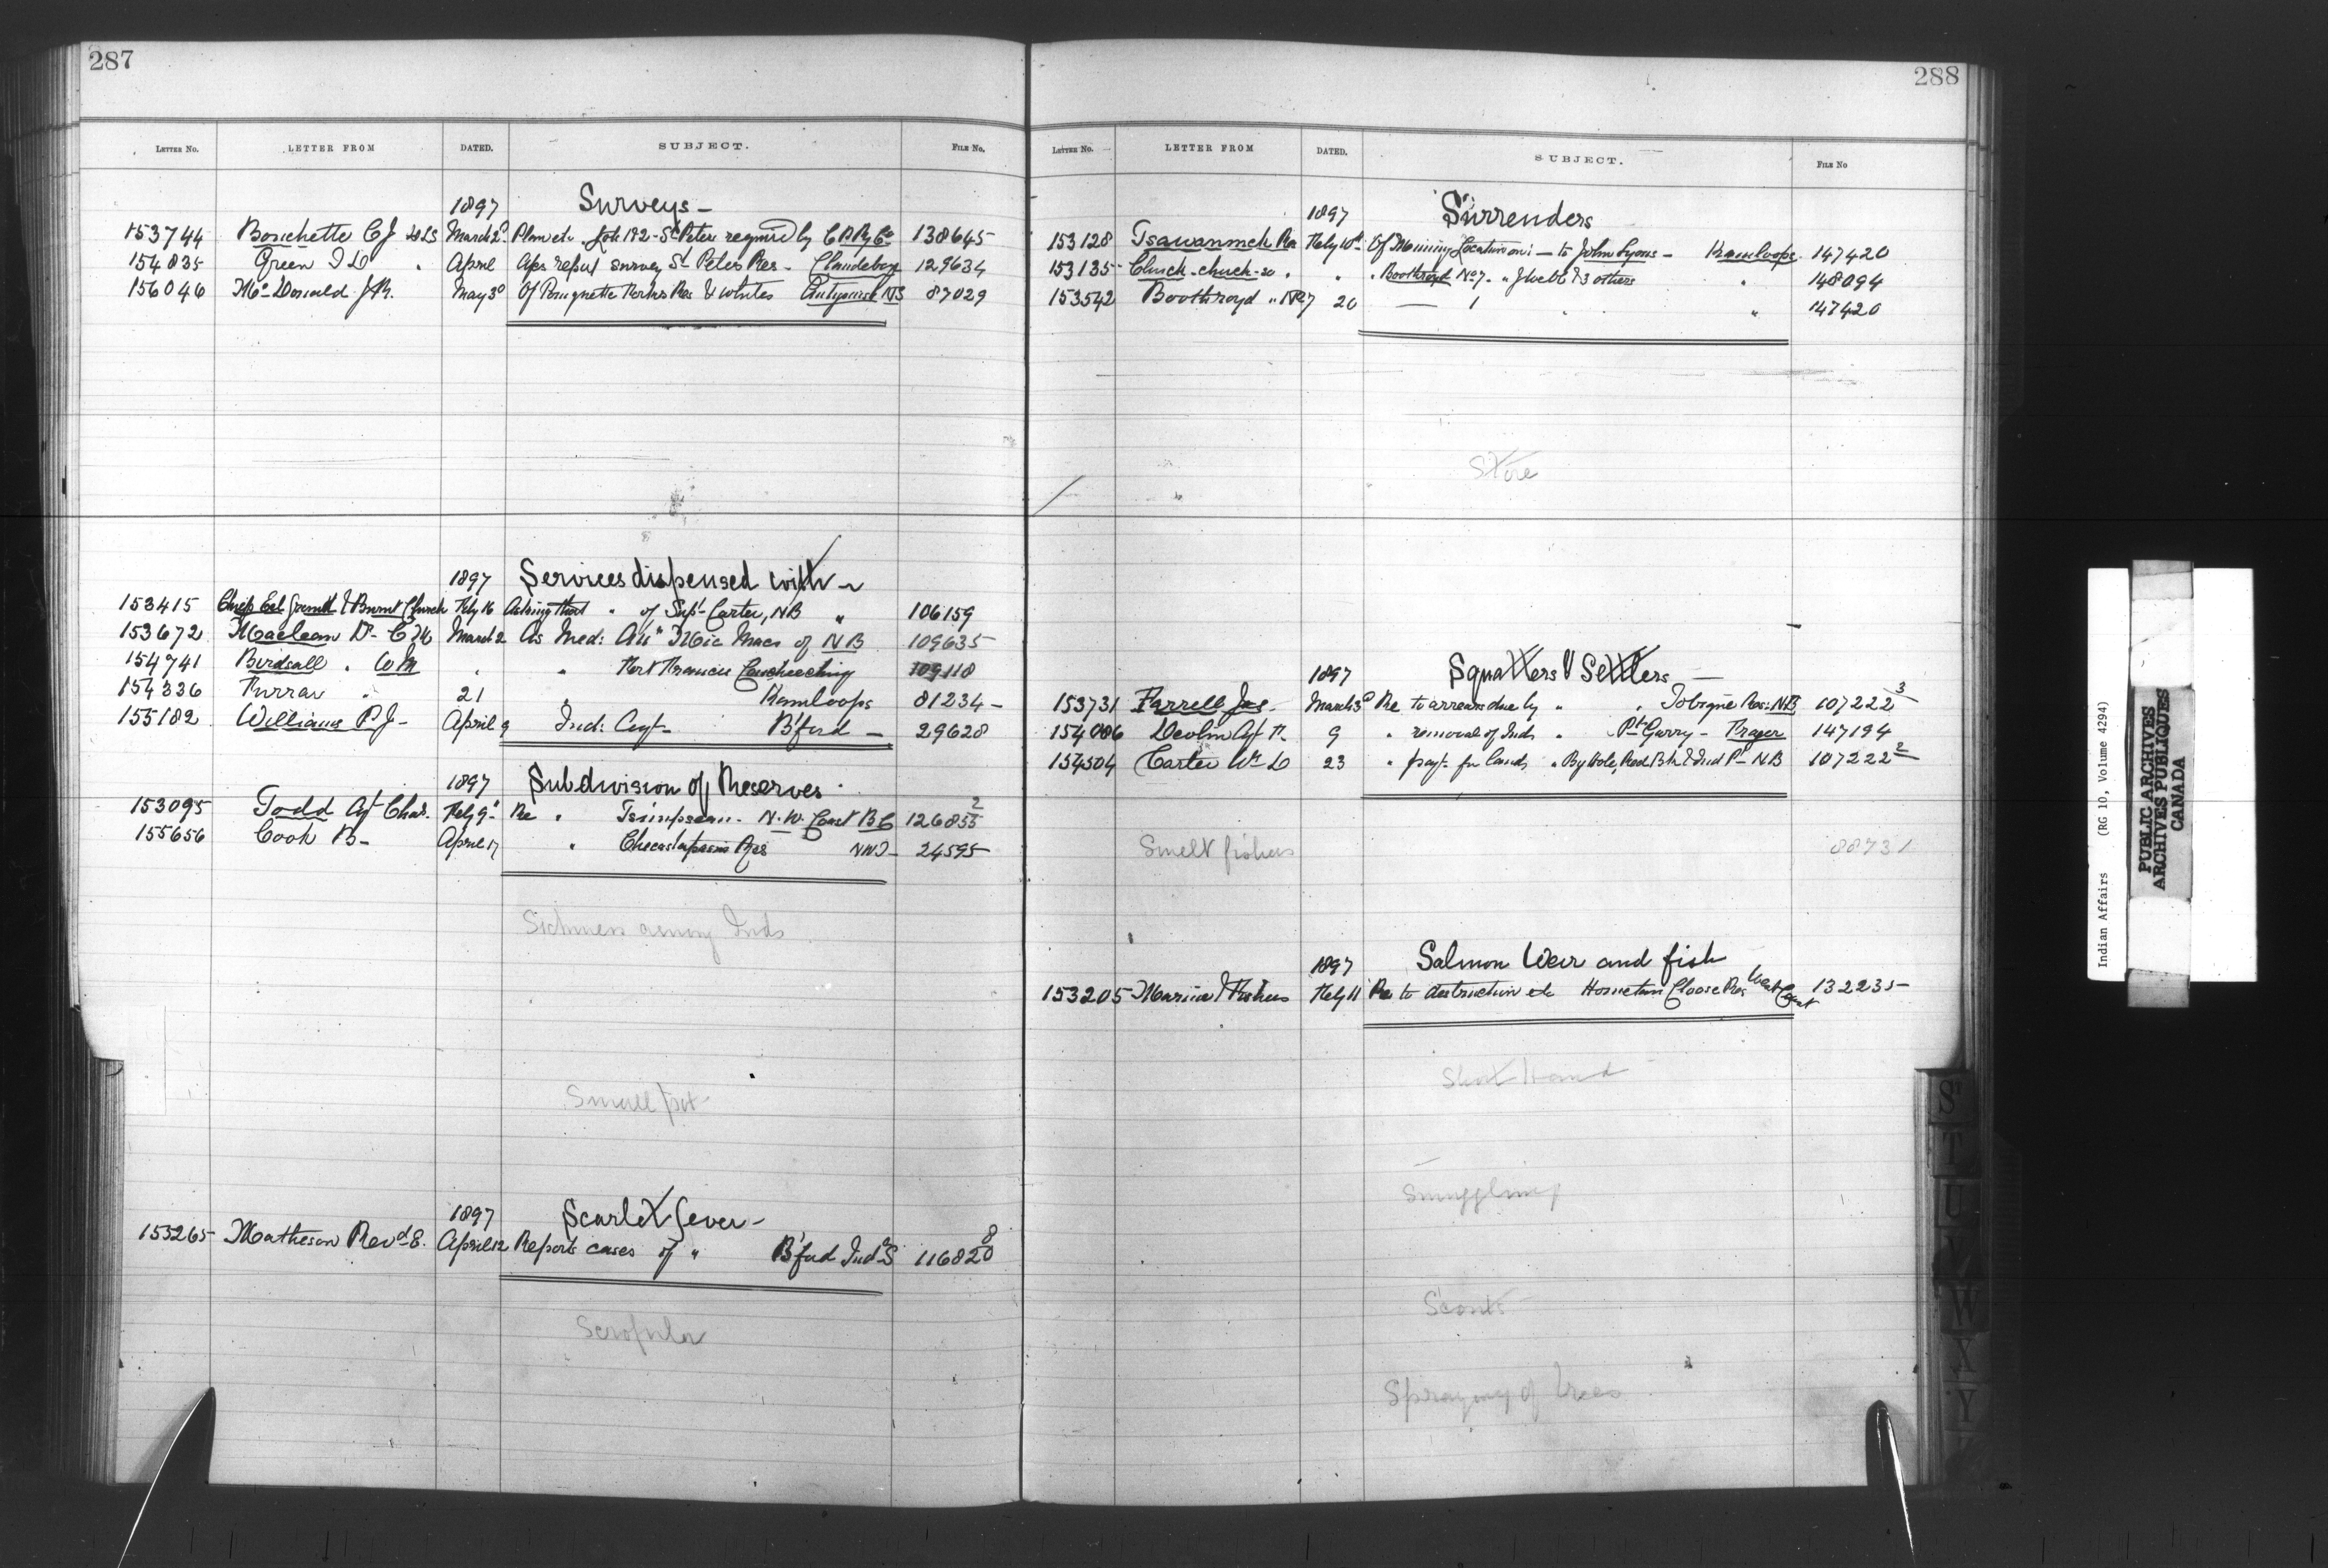 287
LETTER No. LETTER FROM DATED. SUBJECT. FILE No.
1897 Surveys -
153744 Bouchette C J DLS March 2d Plan etc. Job 182 - St Peter required by C P Ry Co 138645
154835 Green T D " April Apr report survey St Peters Res - Clandeboye 129634
156046 McDonald J R. May 3d Of Pomquette Forks Res & Whites Antigonish NS 87029
1897 Services dispensed with -
153415 Chiefs Eel Ground & Burnt Church Feby 16 Asking that " of Supt Carter, NB " 106159
153672 Maclean Dr C M March 2 As Med: Att " Mic Macs of NB 109635
154741 Birdsall " W M " " Fort Francis Coucheeching 109118
154336 Furrar " 21 Kamloops 81234 -
155182 Williams P. J - April 9 Ind: Agt - B'ford - 29628
1897 Subdivision of Reserves -
153095 Todd Agt Chas. Feby 9 Re " Tsimpsean - N. W. Coast BC 126855 2
155656 Cook B - April 17 " Checastapasin Res NWT - 24595
Sickness among Inds
Small pox
1897 Scarlet fever -
155265 Matheson Revd E. April 12 Reports cases of " B'ford Indl S 116820 8
Scrofula
288
LETTER No. LETTER FROM DATED. SUBJECT. FILE No
1897 Surrenders
153128 Tsawanmck Res Feby 10th Of Mining Location on: - to John Lyons - Kamloops 147420
153135 Chuck-chuck-so " " " Boothroyd No 7 - " J Webb & 3 others " 148094
153542 Boothroyd " No 7 20 — 1 " " 147420
Store
1897 Squatters & Settlers -
153731 Farrell Jas - March 3d Re to arrears due by " " Tobique Res: NB 107222 3
154086 Devlin Agt F. 9 " removal of Inds " Pt Garry - Frazer 147194
154504 Carter Wm D 23 " payt for lands " By Hole, Red Bk & Ind Pt NB 107222 2
Smelt fishers 88731
1897 Salmon Weir and fish
153205 Marine & Fisheries Feby 11 Re to destruction etc Res West Coast 132235
Short Hand
Smuggling
Scouts
Spraying of trees
S
T
U
V
W
X
Y
Indian Affairs (RG 10, Volume 4294)
PUBLIC ARCHIVES
ARCHIVES PUBLIQUES
CANADA